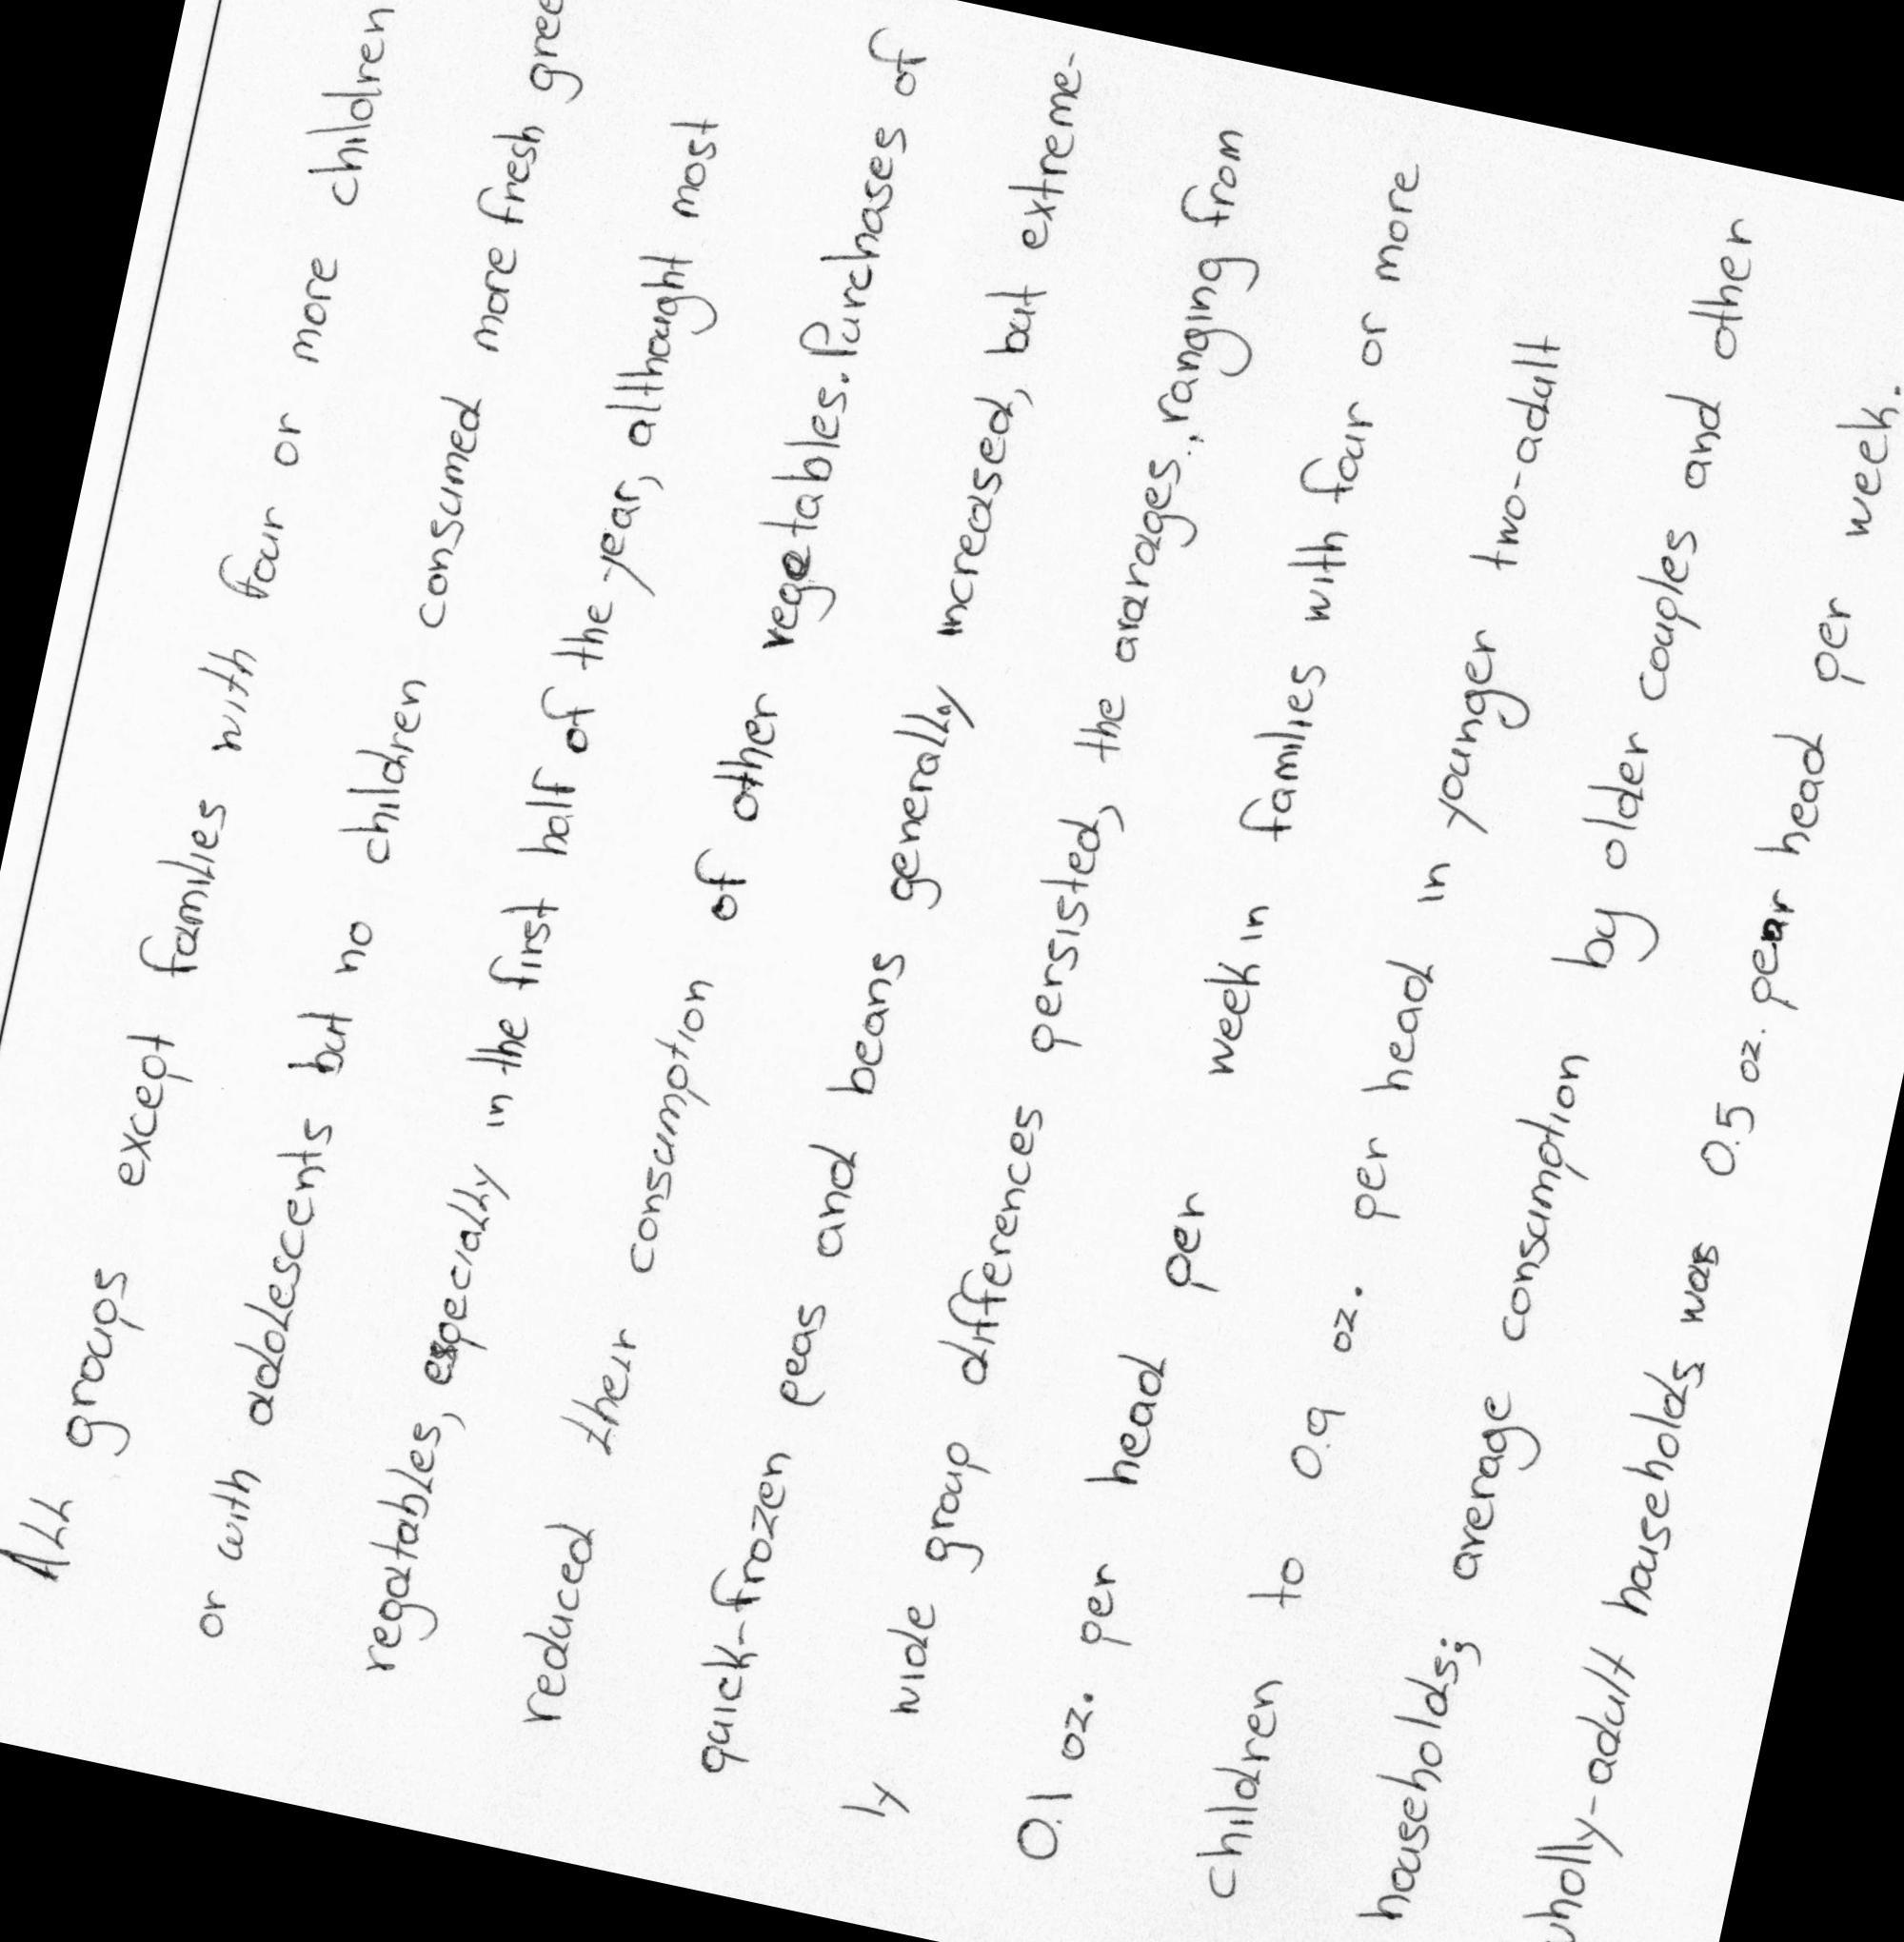 All groups except families with four or more children
or with adolescents but no children consumed more fresh gree
vegatables, especially in the first half of the year, althought most
reduced their consumption of other vegetables. Purchases of
quick-frozen peas and beans generally increased, but extreme-
ly wide group differences persisted, the avarages, ranging from
0.1 oz. per head per week in families with four or more
children to 0.9 oz. per head in younger two-adult
households; average consumption by older couples and other
wholly-adult households was 0.5 oz. pear head per week.